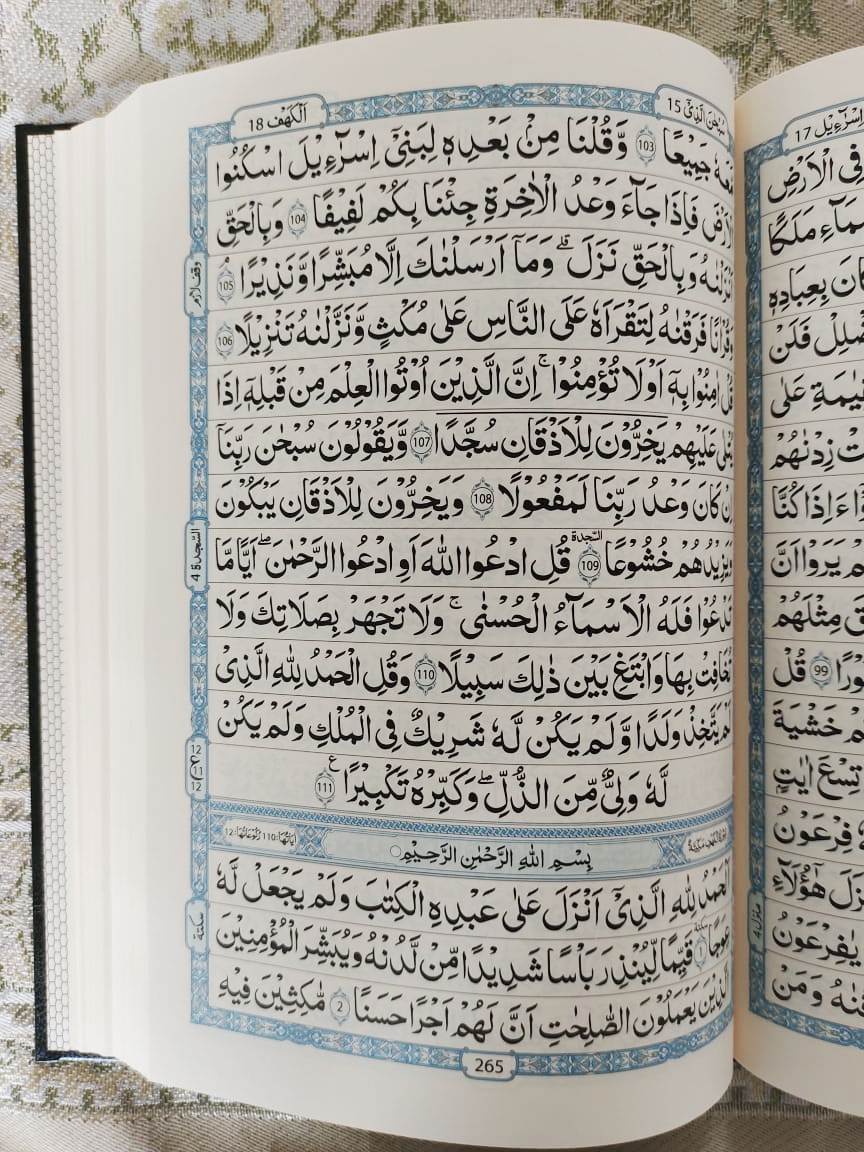 اَلْكَهْف 18
سُبْحٰنَ الَّذِىْۤ 15
مَّعَهٗ جَمِيْعًا 103 وَّقُلْنَا مِنْۢ بَعْدِهٖ لِبَنِىْۤ اِسْرَآءِيْلَ اسْكُنُوا
الْاَرْضَ فَاِذَا جَآءَ وَعْدُ الْاٰخِرَةِ جِئْنَا بِكُمْ لَفِيْفًا 104 وَبِالْحَقِّ
اَنْزَلْنٰهُ وَبِالْحَقِّ نَزَلَ ؕ وَمَاۤ اَرْسَلْنٰكَ اِلَّا مُبَشِّرًا وَّنَذِيْرًا 105
وَقُرْاٰنًا فَرَقْنٰهُ لِتَقْرَاَهٗ عَلَى النَّاسِ عَلٰى مُكْثٍ وَّنَزَّلْنٰهُ تَنْزِيْلًا 106
قُلْ اٰمِنُوْا بِهٖۤ اَوْ لَا تُؤْمِنُوْا ؕ اِنَّ الَّذِيْنَ اُوْتُوا الْعِلْمَ مِنْ قَبْلِهٖۤ اِذَا
يُتْلٰى عَلَيْهِمْ يَخِرُّوْنَ لِلْاَذْقَانِ سُجَّدًا 107 وَّيَقُوْلُوْنَ سُبْحٰنَ رَبِّنَاۤ
اِنْ كَانَ وَعْدُ رَبِّنَا لَمَفْعُوْلًا 108 وَيَخِرُّوْنَ لِلْاَذْقَانِ يَبْكُوْنَ
وَيَزِيْدُهُمْ خُشُوْعًا السّجدة 109 قُلِ ادْعُوا اللّٰهَ اَوِ ادْعُوا الرَّحْمٰنَ ؕ اَيًّا مَّا
تَدْعُوْا فَلَهُ الْاَسْمَآءُ الْحُسْنٰى ۚ وَلَا تَجْهَرْ بِصَلَاتِكَ وَلَا
تُخَافِتْ بِهَا وَابْتَغِ بَيْنَ ذٰلِكَ سَبِيْلًا 110 وَقُلِ الْحَمْدُ لِلّٰهِ الَّذِىْ
لَمْ يَتَّخِذْ وَلَدًا وَّلَمْ يَكُنْ لَّهٗ شَرِيْكٌ فِى الْمُلْكِ وَلَمْ يَكُنْ
لَّهٗ وَلِىٌّ مِّنَ الذُّلِّ وَكَبِّرْهُ تَكْبِيْرًا 111
اٰيَاتُهَا: 110 رُكُوْعَاتُهَا: 12
بِسْمِ اللّٰهِ الرَّحْمٰنِ الرَّحِيْمِ
اَلْحَمْدُ لِلّٰهِ الَّذِىْۤ اَنْزَلَ عَلٰى عَبْدِهِ الْكِتٰبَ وَلَمْ يَجْعَلْ لَّهٗ
عِوَجًا 1 قَيِّمًا لِّيُنْذِرَ بَاْسًا شَدِيْدًا مِّنْ لَّدُنْهُ وَيُبَشِّرَ الْمُؤْمِنِيْنَ
الَّذِيْنَ يَعْمَلُوْنَ الصّٰلِحٰتِ اَنَّ لَهُمْ اَجْرًا حَسَنًا 2 مّٰكِثِيْنَ فِيْهِ
265
وقف لازم
السّجدة 4
12
ع 11
12
سكتة
17
فِى الْاَرْضِ
مَلَكًا
بِعِبَادِهٖ
فَلَنْ
عَلٰى
زِدْنٰهُمْ
ءَاِذَا كُنَّا
يَرَوْا اَنَّ
مِثْلَهُمْ
99 قُلْ
خَشْيَةَ
تِسْعَ اٰيٰتٍ
فِرْعَوْنُ
هٰٓؤُلَآءِ
يٰفِرْعَوْنُ
وَمَنْ
منزل 4